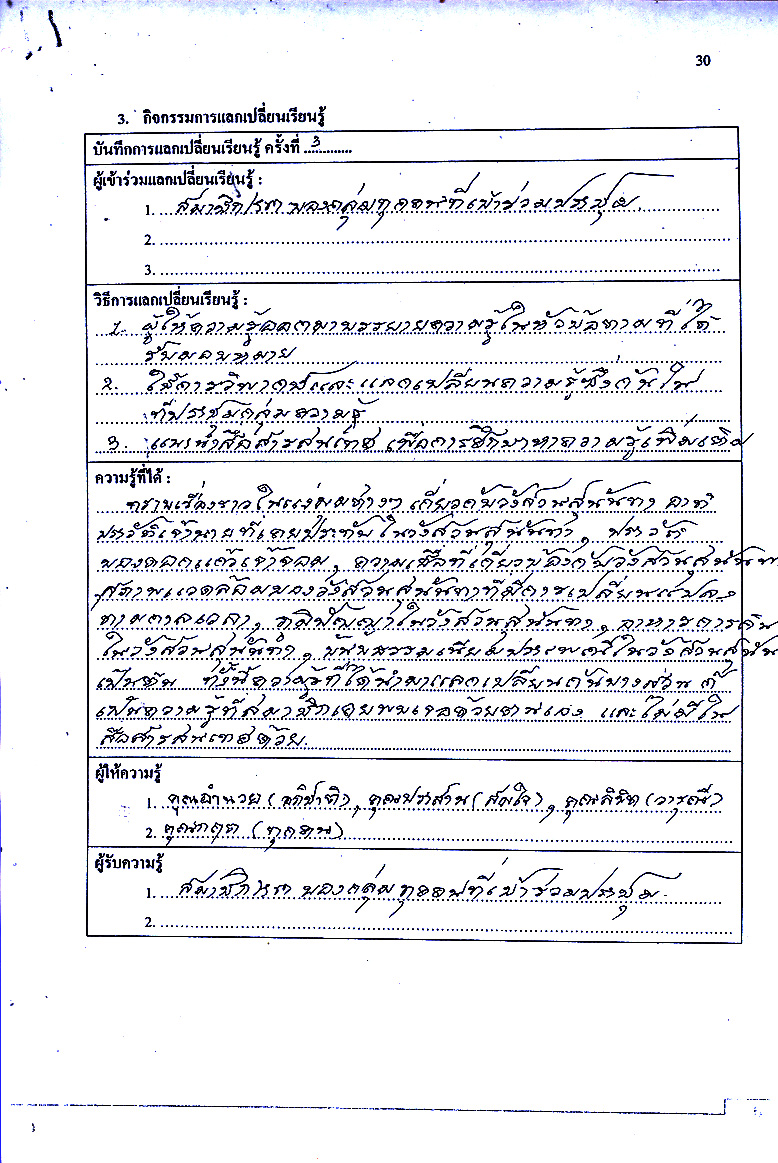 30
3. กิจกรรมการแลกเปลี่ยนเรียนรู้
บันทึกการแลกเปลี่ยนเรียนรู้ ครั้งที่ ..3..........
ผู้เข้าร่วมแลกเปลี่ยนเรียนรู้ :
1. สมาชิก ของกลุ่มทุกคนที่เข้าร่วมประชุม
2.
3.
วิธีการแลกเปลี่ยนเรียนรู้ :
1. ผู้ให้ความรู้ออกมาบรรยายความรู้ในหัวข้อตามที่ได้
รับมอบหมาย
2. ใช้การวิพากษ์และแลกเปลี่ยนความรู้ซึ่งกันใน
ที่ประชุมกลุ่มความรู้
3. แนะนำสื่อสารสนเทศ เพื่อการศึกษาหาความรู้เพิ่มเติม
ความรู้ที่ได้ :
ทราบเรื่องราวในแง่มุมต่างๆ เกี่ยวกับวังสวนสุนันทา อาทิ
ประวัติเจ้านายที่เคยประทับในวังสวนสุนันทา, ประวัติ
ของ เจ้าจอม, ความเชื่อที่เกี่ยวข้องกับวังสวนสุนันทา
สภาพแวดล้อมของวังสวนสุนันทาที่มีการเปลี่ยนแปลง
ตามกาลเวลา, ภูมิปัญญาในวังสวนสุนันทา, อาหารการกิน
ในวังสวนสุนันทา, ขนบธรรมเนียมประเพณีในวังสวนสุนัน
เป็นต้น ทั้งนี้ความรู้ที่ได้นำมาแลกเปลี่ยนกันบางส่วน ก็
เป็นความรู้ที่สมาชิกเคยพบเจอด้วยตนเอง และไม่มีใน
สื่อสารสนเทศด้วย.
ผู้ให้ความรู้
1. คุณอำนวย (อภิชาติ), คุณประสาน (สมใจ), คุณลิขิต (วารุณี)
2. คุณกิจ (ทุกคน)
ผู้รับความรู้
1. สมาชิก ของกลุ่มทุกคนที่เข้าร่วมประชุม.
2.